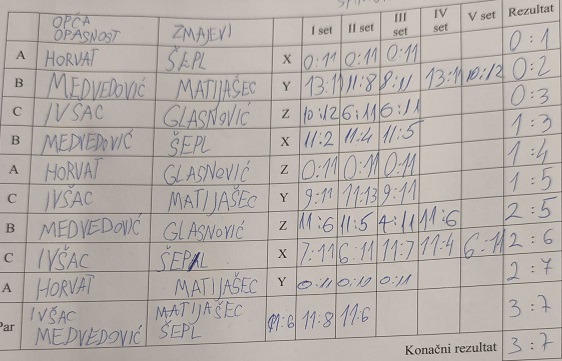 OPĆA OPASNOST ZMAJEVI I set II set III set IV set V set Rezultat
A HORVAT ŠEPL X 0:11 0:11 0:11 0:1
B MEDVEDOVIĆ MATIJAŠEC Y 13:11 11:8 8:11 13:11 10:12 0:2
C IVŠAC GLASNOVIĆ Z 10:12 6:11 6:11 0:3
B MEDVEDOVIĆ ŠEPL X 11:2 11:4 11:5 1:3
A HORVAT GLASNOVIĆ Z 0:11 0:11 0:11 1:4
C IVŠAC MATIJAŠEC Y 9:11 11:13 9:11 1:5
B MEDVEDOVIĆ GLASNOVIĆ Z 11:6 11:5 4:11 11:6 2:5
C IVŠAC ŠEPL X 7:11 6:11 11:7 11:4 6:11 2:6
A HORVAT MATIJAŠEC Y 0:11 0:11 0:11 2:7
Par IVŠAC MEDVEDOVIĆ MATIJAŠEC ŠEPL 11:6 11:8 11:6 3:7
Konačni rezultat 3:7